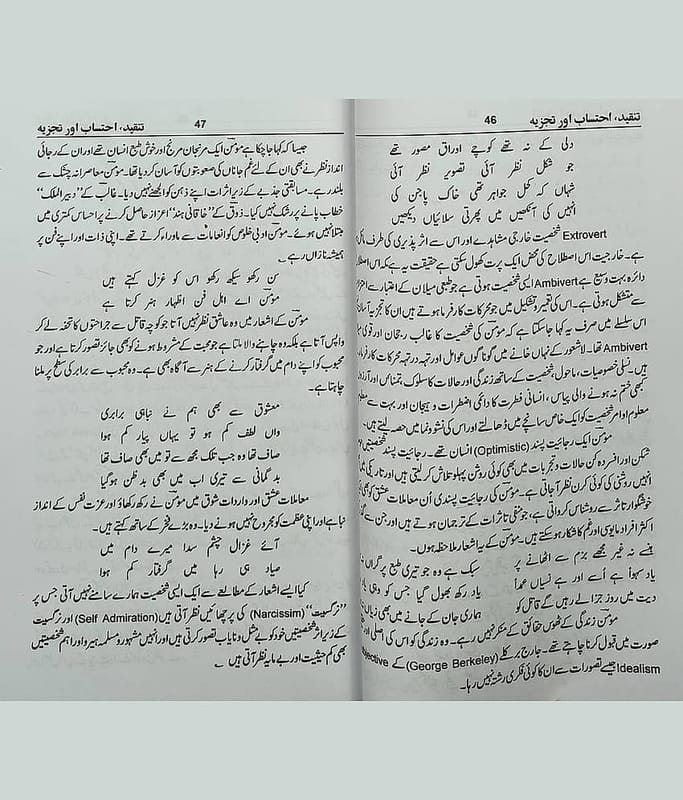 تنقید، احتساب اور تجزیہ 46
دلی کے نہ تھے کوچے اوراق مصور تھے
جو شکل نظر آئی تصویر نظر آئی
شہاں کہ کحل جواہر تھی خاک پا جن کی
انہیں کی آنکھیں میں پھرتی سلائیاں دیکھیں
Extrovert شخصیت خارجی مشاہدے اور اس سے اثر پذیری کی طرف مائل
ہے۔ خارجیت اس اصطلاح کی محض ایک پرت کھول سکتی ہے حقیقت یہ ہے کہ اس
دائرہ بہت وسیع ہے Ambivert ایسی شخصیت ہوتی ہے جو طبعی میلان کے اعتبار سے
سے متشکل ہوتی ہے۔ اس کی تعمیر و تشکیل میں جو محرکات کارفرما ہوتے ہیں ان کا تجزیہ آسان
اس سلسلے میں صرف یہ کہا جا سکتا ہے کہ مومن کی شخصیت کا غالب رجحان اور قوی
Ambivert تھا۔ لاشعور کے نہاں خانے میں گوناگوں عوامل اور تہہ در تہہ محرکات کارفرما
ہیں۔ نسلی خصوصیات، ماحول، شخصیت کے ساتھ زندگی اور حالات کا سلوک، تمنائیں اور آرزو
کبھی ختم نہ ہونے والی پیاس، انسانی فطرت کا دائمی اضطراب و ہیجان اور بہت سے
معلوم اوامر شخصیت کو ایک خاص سانچے میں ڈھالتے اور اس کی نشوونما میں حصہ لیتے ہیں۔
مومن ایک رجائیت پسند (Optimistic) انسان تھے۔ رجائیت پسند شخصیتیں
شکن اور افسردہ کن حالات و تجربات میں بھی کوئی روشن پہلو تلاش کر لیتی ہیں اور تاریکی میں
انہیں روشنی کی کوئی کرن نظر آ جاتی ہے۔ مومن کی رجائیت پسندی اُن معاملات عشق کو بھی
خوشگوار تاثر سے روشناس کرواتی ہے، جو منفی تاثرات کے ترجمان ہوتے ہیں اور جن سے
اکثر افراد مایوسی اور غم کا شکار ہو سکتے ہیں۔ مومن کے یہ اشعار ملاحظہ ہوں۔
ہنسے نہ غیر مجھے بزم سے اٹھانے پر
سبک ہے وہ جو تیری طبع پر گراں
یاد سہواً ہے اُسے اور ہے نسیاں عمداً
یاد رکھ بھول گیا جس کو وہی یاد
دیت میں روز جزا لے رہیں گے قاتل کو
ہماری جان کے جانے میں بھی زیاں
مومن زندگی کے ٹھوس حقائق کے منکر نہیں رہے۔ وہ زندگی کو اس کی اصلی اور
صورت میں قبول کرنا چاہتے تھے۔ جارج برکلے (George Berkeley) کے
Idealism جیسے تصورات سے ان کا کوئی فکری رشتہ نہیں رہا۔
47 تنقید، احتساب اور تجزیہ
جیسا کہ کہا جا چکا ہے مومن ایک مرنجان مرنج اور خوش طبع انسان تھے اور ان کے رجائی
انداز نظر نے بھی ان کے لئے غم جاناں کی صعوبتوں کو آسان کر دیا تھا۔ مومن معاصرانہ چشمک سے
بلند رہے۔ مسابقتی جذبے کے زیر اثرات اپنے ذہن کو الجھنے نہیں دیا۔ غالب کے "دبیر الملک"
خطاب پانے پر رشک نہیں کیا۔ ذوق کے "خاقانی ہند" اعزاز حاصل کرنے پر احساس کمتری میں
مبتلا نہیں ہوئے۔ مومن ادبی خلوص کو انعامات سے ماوراء کرتے تھے۔ اپنی ذات اور اپنے فن پر
ہمیشہ نازاں رہے۔
سن رکھو سیکھ رکھو اس کو غزل کہتے ہیں
مومن اے اہل فن اظہار ہنر کرتا ہے
مومن کے اشعار میں وہ عاشق نظر نہیں آتا جو کوچہ قاتل سے جراحتوں کا تحفہ لے کر
واپس آتا ہے بلکہ وہ چاہنے والا ملتا ہے جو محبت کے مشروط ہونے کو بھی جائز تصور کرتا ہے اور جو
محبوب کو اپنے دام میں گرفتار کرنے کے ہنر سے آگاہ بھی ہے۔ وہ محبوب سے برابر کی سطح پر ملنا
چاہتا ہے۔
معشوق سے بھی ہم نے نباہی برابری
واں لطف کم ہو تو یہاں پیار کم ہوا
صاف تھا وہ جب تلک مجھ سے تو میں بھی صاف تھا
بدگمانی سے تیری اب میں بھی بدظن ہوگیا
معاملات عشق اور واردات شوق میں مومن نے رکھ رکھاؤ اور عزت نفس کے انداز
نباہے اور اپنی عظمت کو مجروح نہیں ہونے دیا۔ وہ بڑے فخر کے ساتھ کہتے ہیں۔
آئے غزال چشم سدا میرے دام میں
صیاد ہی رہا میں گرفتار کم ہوا
کیا ایسے اشعار کے مطالعے سے ایک ایسی شخصیت ہمارے سامنے نہیں آتی جس پر
"نرگسیت" (Narcissim) کی پرچھائیں نظر آتی ہیں (Self Admiration) اور نرگسیت
کے زیر اثر شخصیتیں خود کو بے مثل و نایاب تصور کرتی ہیں اور انہیں مشہور و مسلمہ ہیرو اور اہم شخصیتیں
بھی کم حیثیت اور بے مایہ نظر آتی ہیں۔